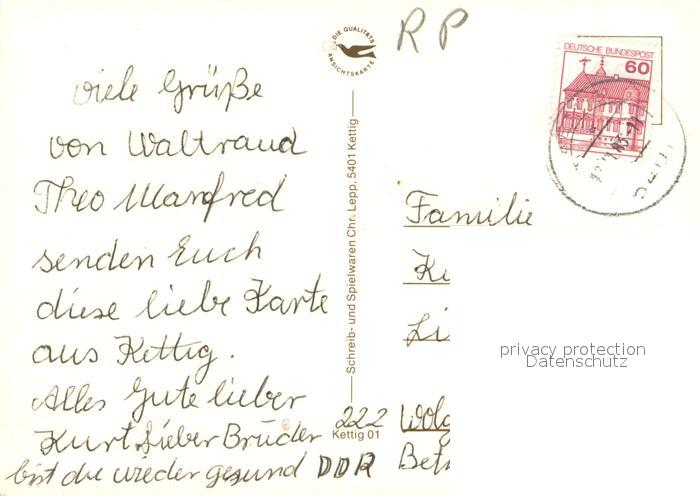 viele Grüße
von Waltraud
Theo Manfred
senden Euch
diese liebe Karte
aus Kettig.
Alles Gute lieber
Kurt. Lieber Brüder
bist du wieder gesund
DIE QUALITÄTS
ANSICHTSKARTE
Schreib- und Spielwaren Chr. Lepp, 5401 Kettig
Kettig 01
RP
DEUTSCHE BUNDESPOST
60
Familie
privacy protection
Datenschutz
222
DDR